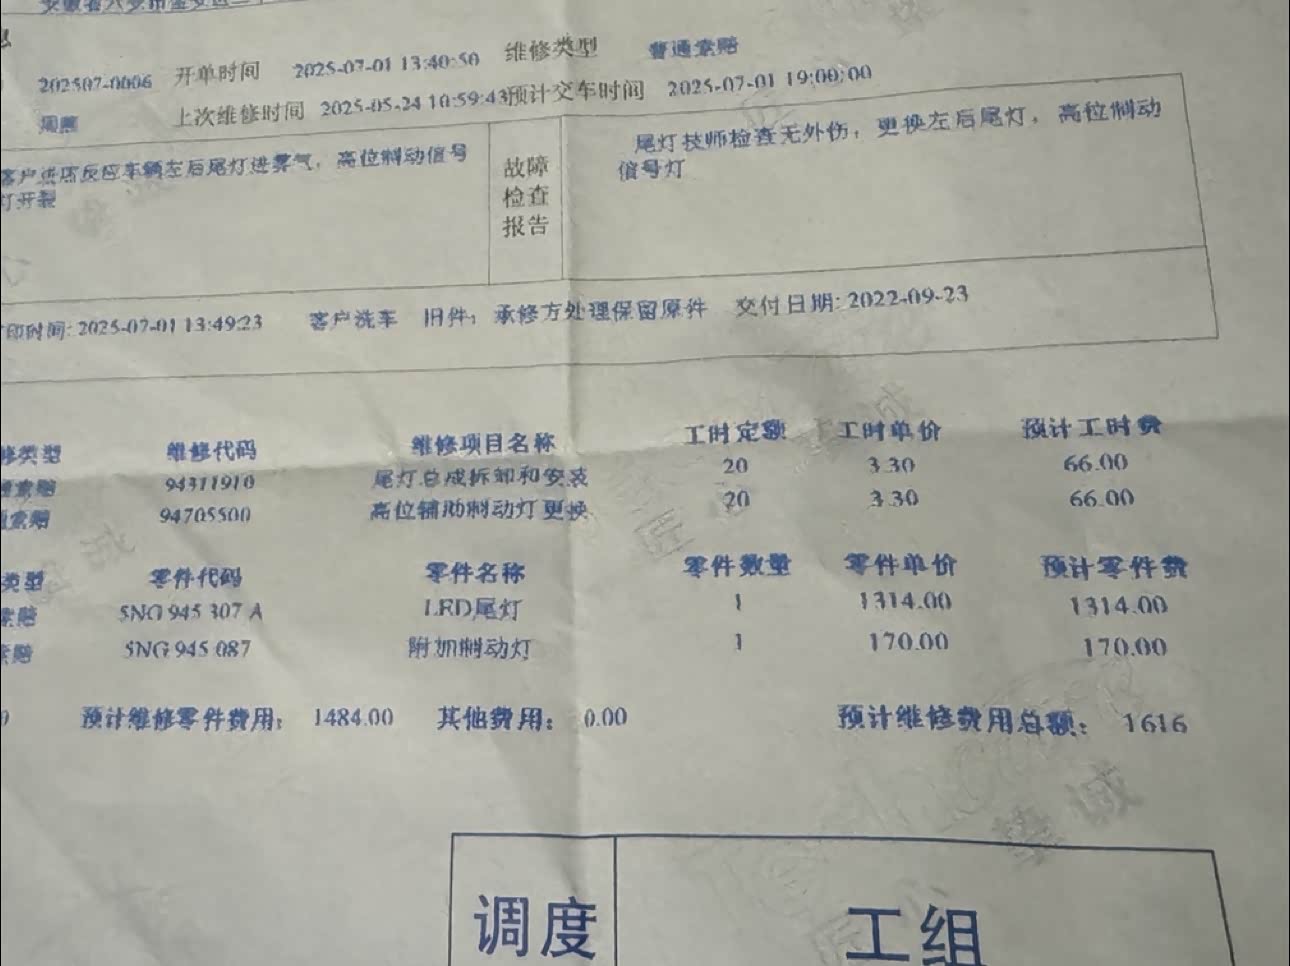 202507-0006 开单时间 2025-07-01 13:40:50 维修类型 普通索赔
上次维修时间 2025-05-24 10:59:43 预计交车时间 2025-07-01 19:00:00
客户进店反应车辆左后尾灯进雾气，高位制动信号
灯开裂
故障
检查
报告
尾灯技师检查无外伤，更换左后尾灯，高位制动
信号灯
印时间: 2025-07-01 13:49:23 客户洗车 旧件：承修方处理保留原件 交付日期: 2022-09-23
修类型 维修代码 维修项目名称 工时定额 工时单价 预计工时费
通索赔 94311910 尾灯总成拆卸和安装 20 3.30 66.00
通索赔 94705500 高位辅助制动灯更换 20 3.30 66.00
类型 零件代码 零件名称 零件数量 零件单价 预计零件费
索赔 5NG 945 307 A LRD尾灯 1 1314.00 1314.00
索赔 5NG 945 087 附加制动灯 1 170.00 170.00
预计维修零件费用： 1484.00 其他费用： 0.00 预计维修费用总额： 1616
调度 工组